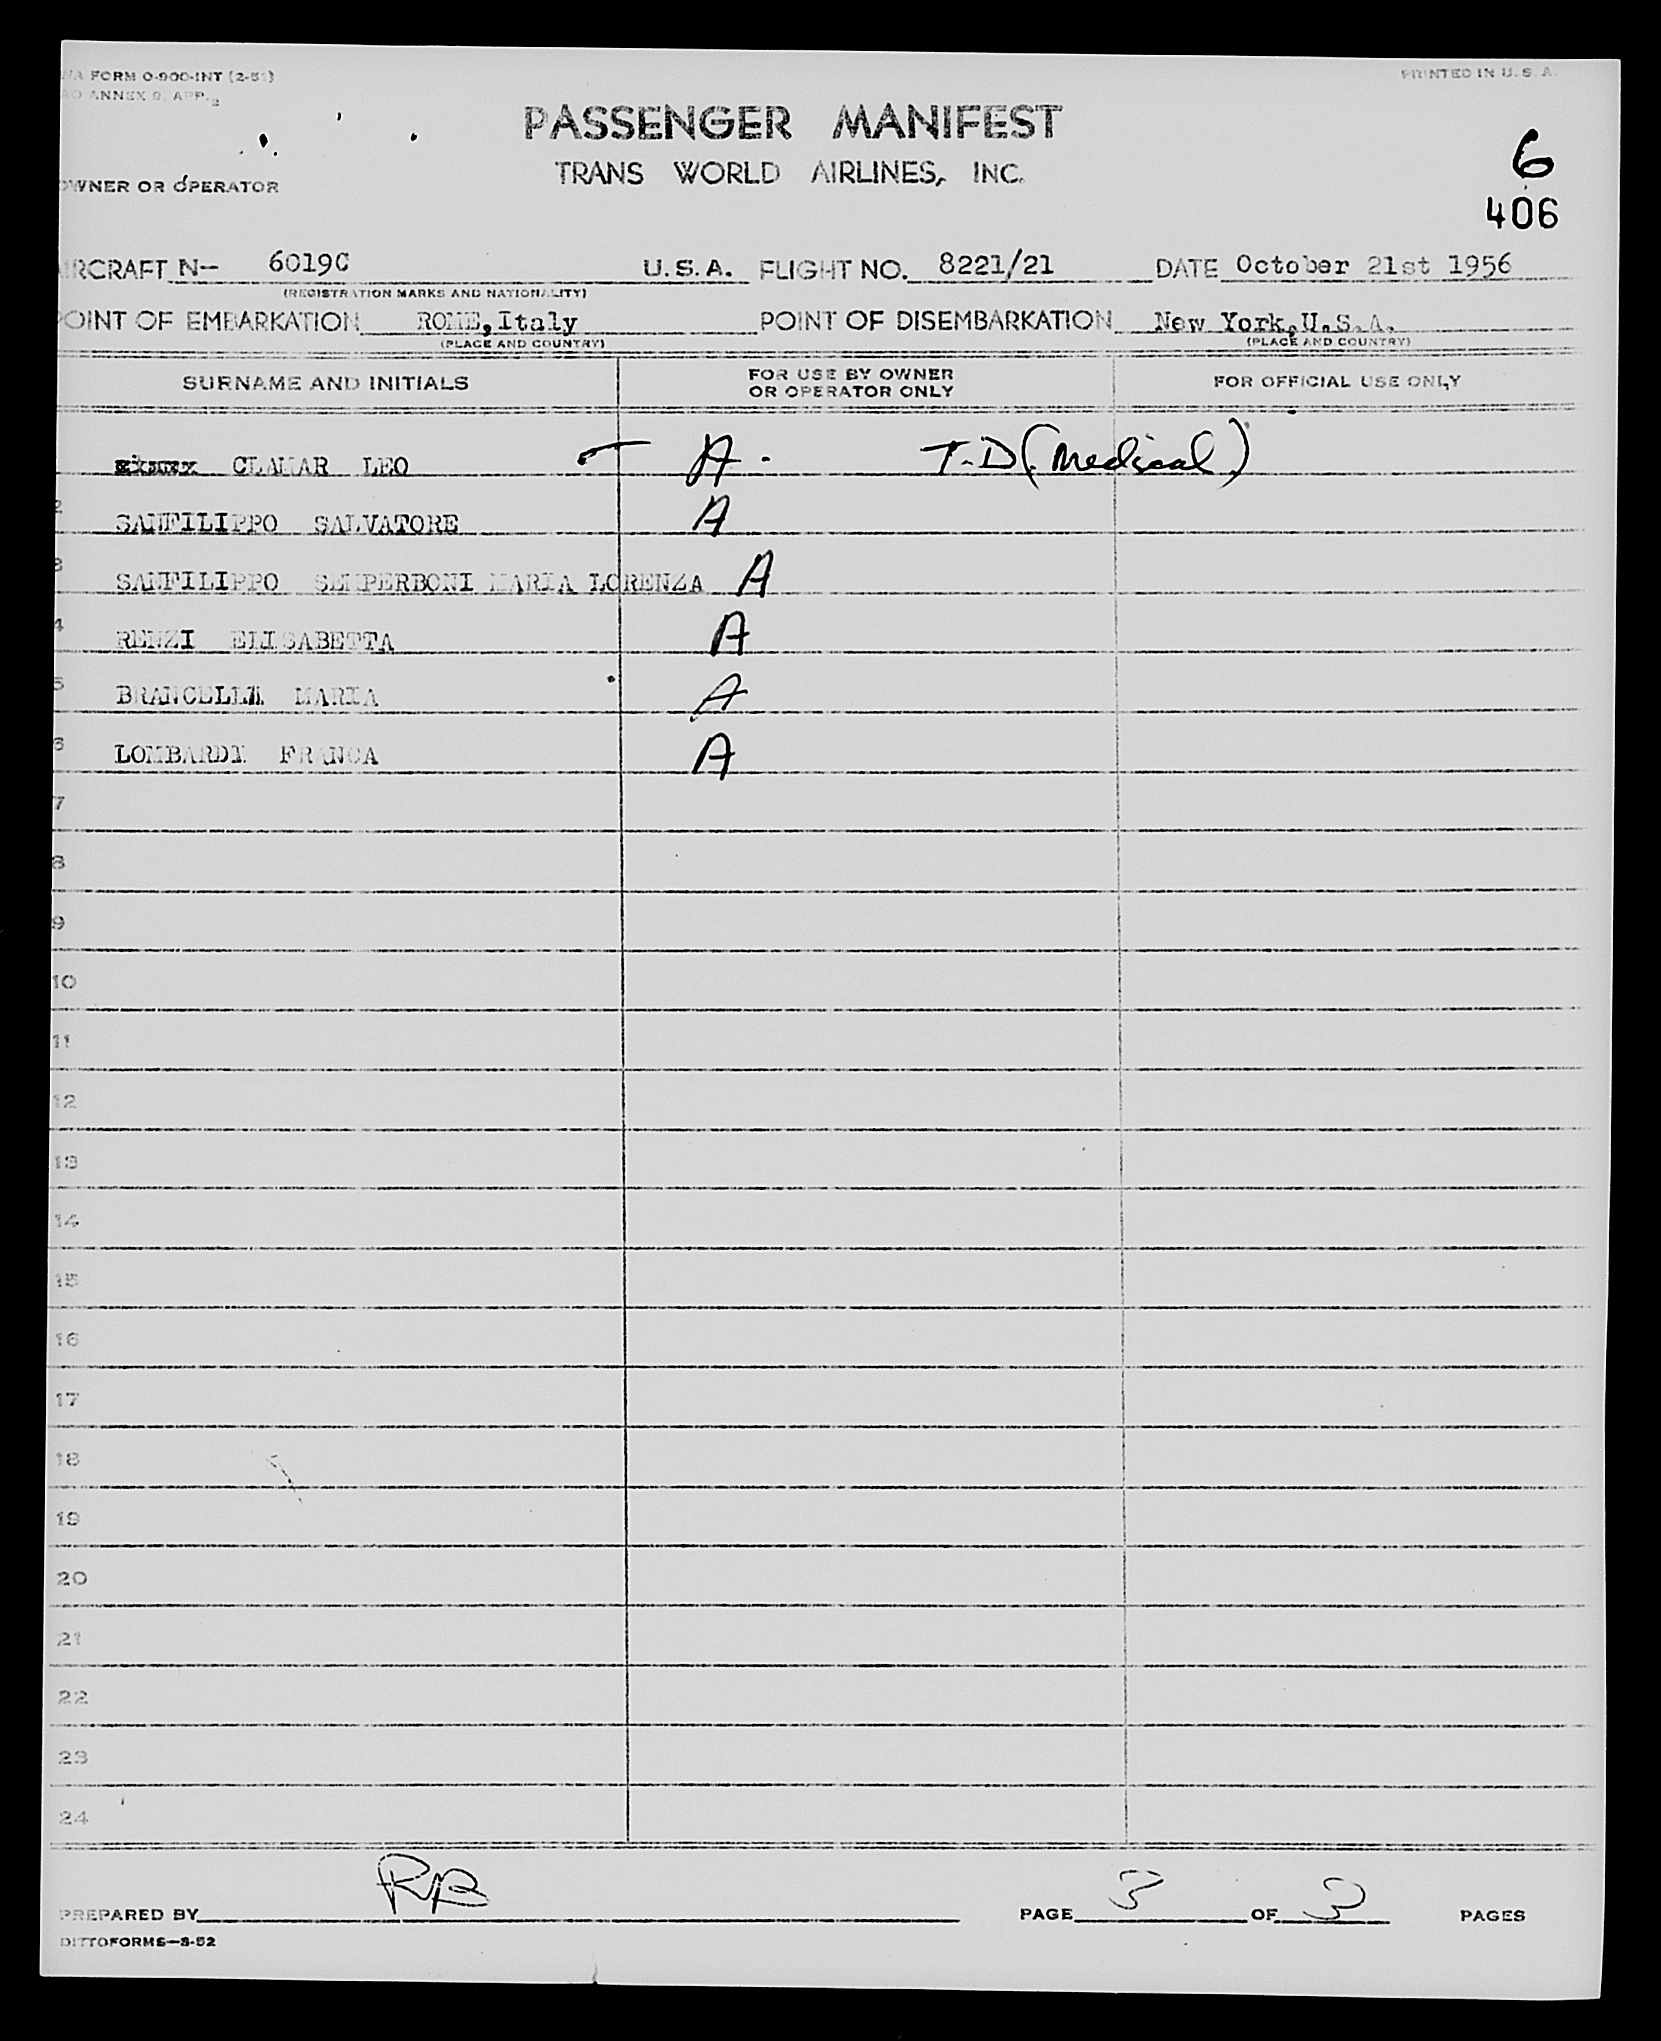 FORM O-900-INT (2-51)
PRINTED IN U.S.A.
ANNEX 9, APP. 2
PASSENGER MANIFEST
TRANS WORLD AIRLINES, INC.
6
OWNER OR OPERATOR
406
AIRCRAFT N- 6019C U.S.A. FLIGHT NO. 8221/21 DATE October 21st 1956
(REGISTRATION MARKS AND NATIONALITY)
POINT OF EMBARKATION ROME,Italy POINT OF DISEMBARKATION New York,U.S.A.
(PLACE AND COUNTRY) (PLACE AND COUNTRY)
SURNAME AND INITIALS FOR USE BY OWNER OR OPERATOR ONLY FOR OFFICIAL USE ONLY
CLAMAR LEO A. T.D (Medical)
2 SANFILIPPO SALVATORE A
3 SANFILIPPO SEMPERBONI MARIA LORENZA A
4 RENZI ELISABETTA A
5 MARIA A
6 LOMBARDI FRANCA A
7
8
9
10
11
12
13
14
15
16
17
18
19
20
21
22
23
24
PREPARED BY RB PAGE 3 OF 3 PAGES
DITTOFORMS—3-52